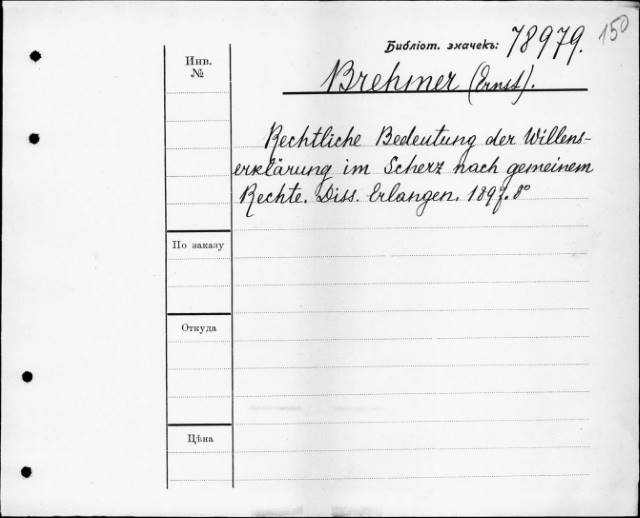 150
Библіот. значекъ: 78979.
Инв. №
Brehmer (Ernst).
Rechtliche Bedeutung der Willens-
erklärung im Scherz nach gemeinem
Rechte. Diss. Erlangen. 1897. 8°
По заказу
Откуда
Цѣна